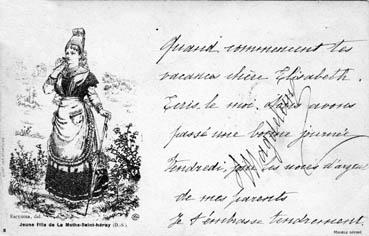 Quand commencent tes
vacances chère Elisabeth.
Ecris le moi. Nous avons
passé une bonne journée
Vendredi, pour les noces d'argent
de mes parents
Je t'embrasse tendrement.
Jeune fille de La Mothe-Saint-Héray (D.-S.)